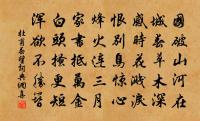 國破山河在
城春草木深
感時花濺淚
恨別鳥驚心
烽火連三月
家書抵萬金
白頭搔更短
渾欲不勝簪
杜甫春望